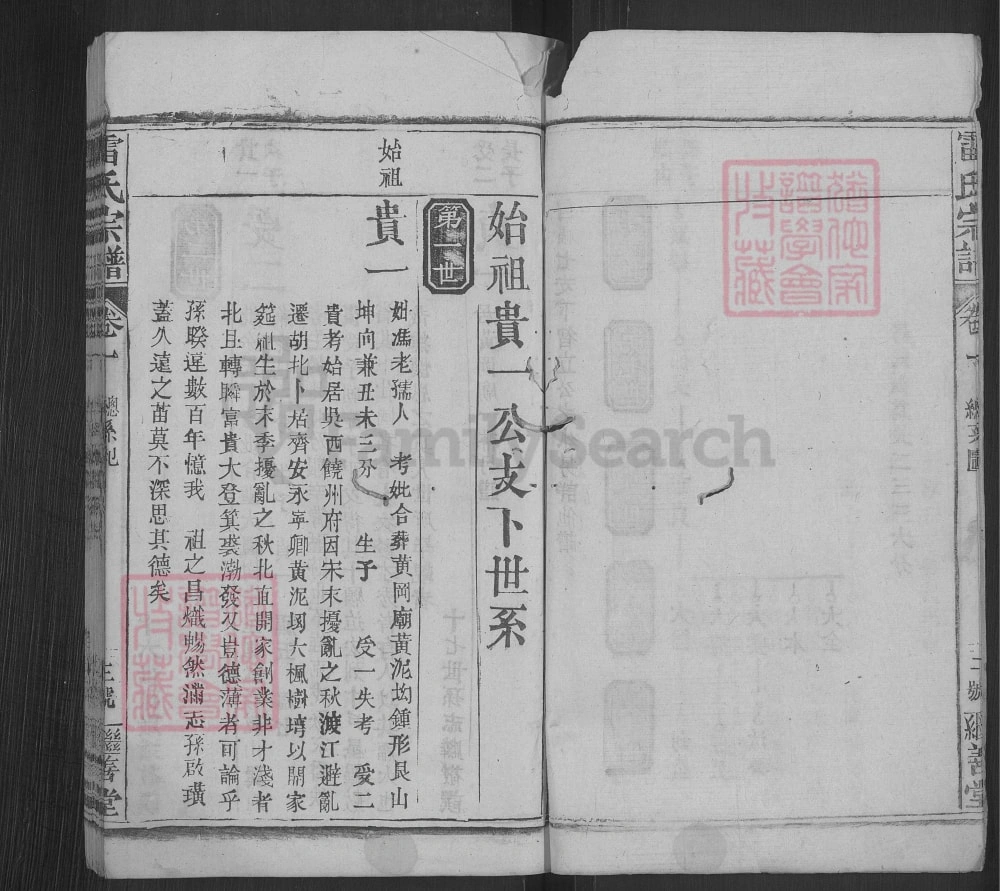 雷氏宗譜
卷一
總系圖
二號
繼善堂
始祖貴一公支下世系
第一世
始祖
貴一
妣馮老孺人 考妣合葬黃岡廟黃泥坳鍾形艮山
坤向兼丑未三分 生子 受一失考 受二
貴考始居吳西饒州府因宋末擾亂之秋渡江避亂
遷胡北卜居齊安永寧卿黃泥坳大楓樹塆以開家
筵祖生於末季擾亂之秋北直開家創業非才淺者
北且轉瞬富貴大登箕裘渤發又豈德薄者可論乎
孫睽違數百年憶我 祖之昌熾暢然滿志孫啟璜
蓋久遠之苗莫不深思其德矣
雷氏宗譜
卷一
總系
三號
繼善堂
FamilySearch